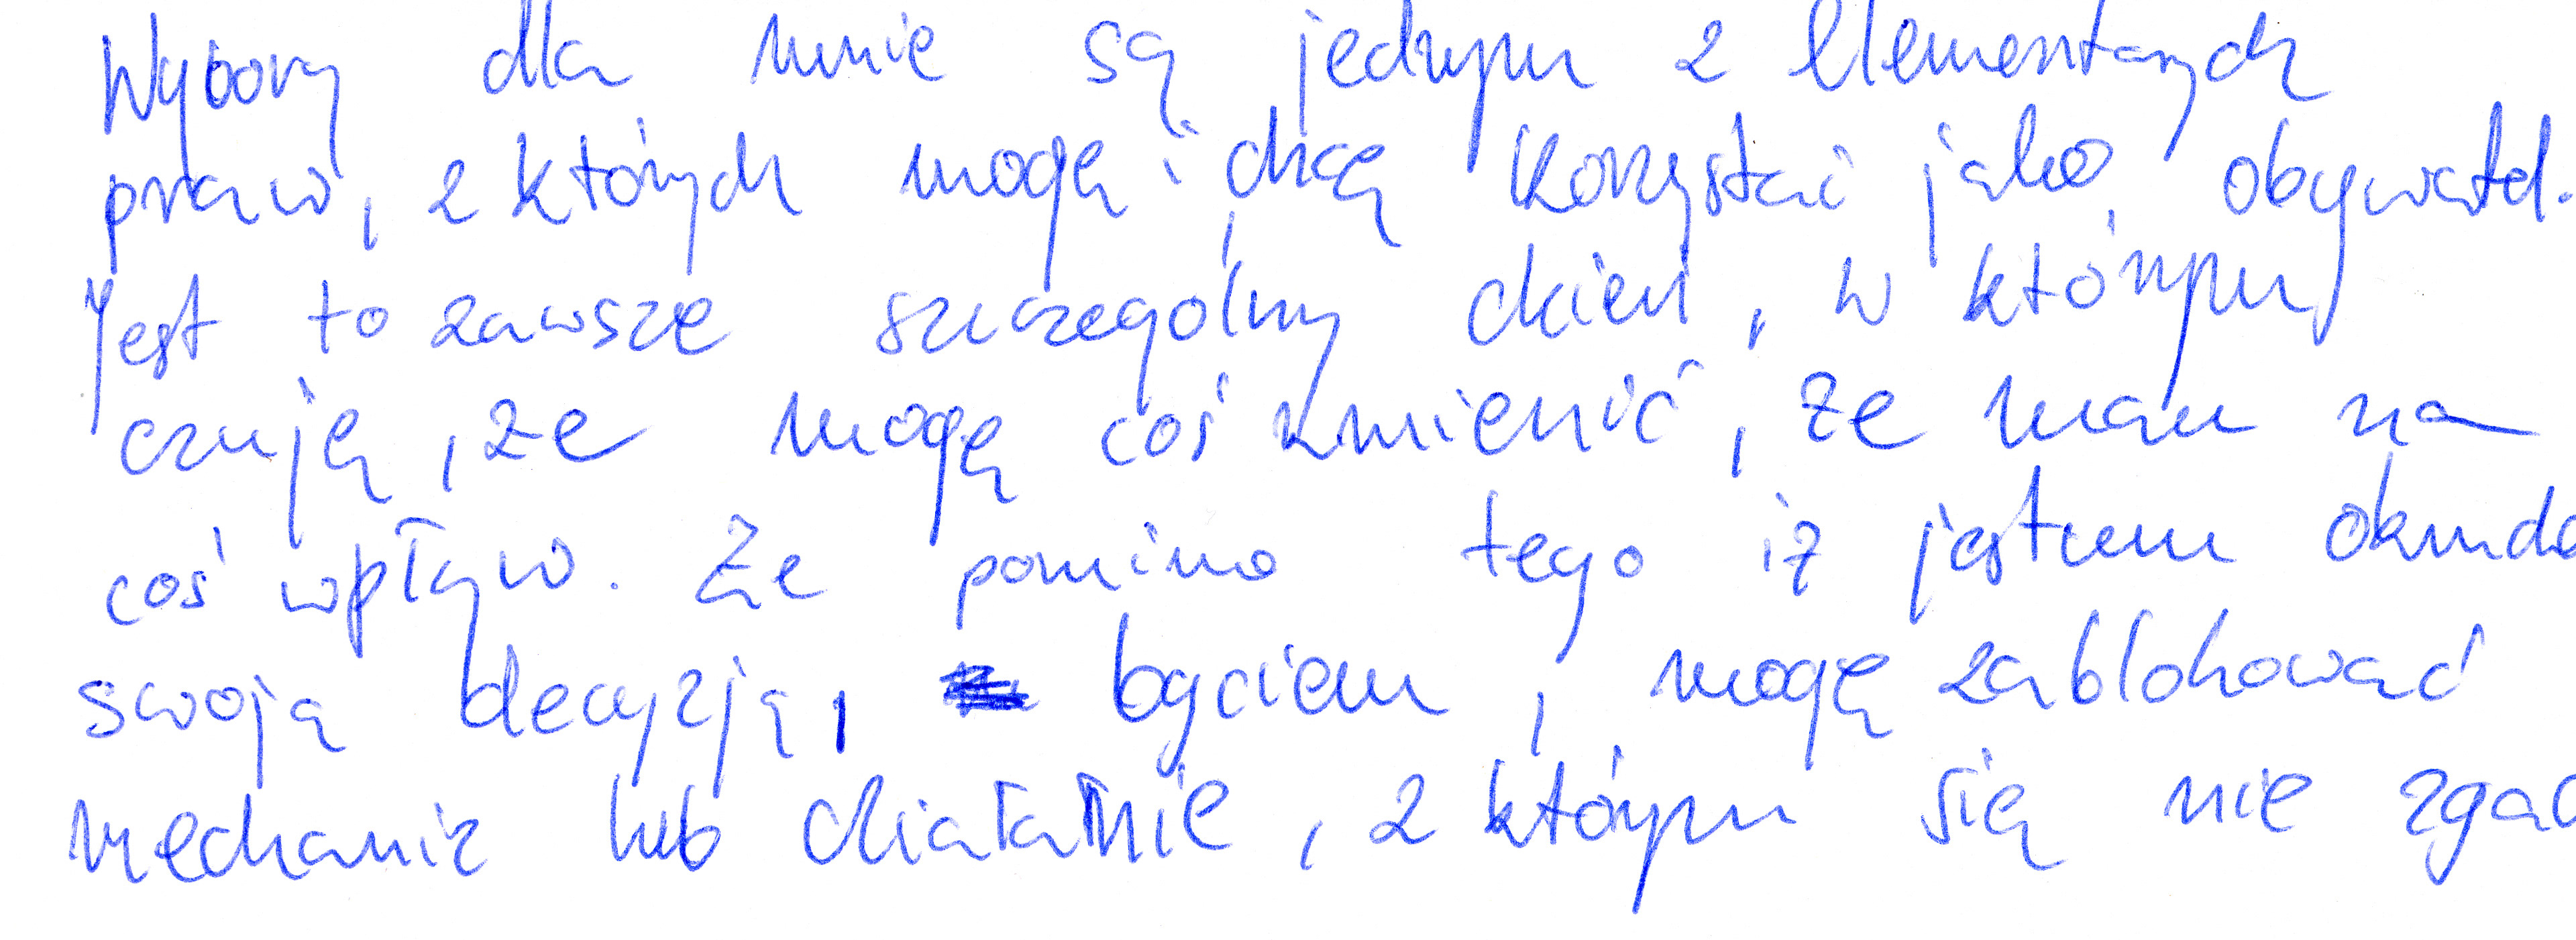 Wybory dla mnie są jednym z elementarnych
praw, z których mogę i chcę korzystać jako obywatel.
Jest to zawsze szczególny dzień, w którym
czuję, że mogę coś zmienić, że mam na
coś wpływ. Że pomimo tego iż jestem
swoją decyzją, byciem, mogę zablokować
mechanizm lub działanie, z którym się nie